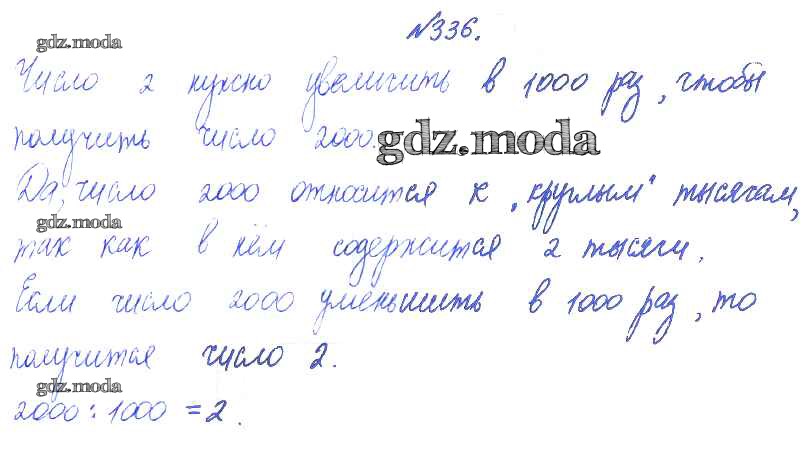 №336.
gdz.moda
Число 2 нужно увеличить в 1000 раз, чтобы
получить число 2000.
gdz.moda
Да, число 2000 относится к „круглым" тысячам,
gdz.moda
так как в нём содержится 2 тысячи.
Если число 2000 уменьшить в 1000 раз, то
получится число 2.
gdz.moda
2000 : 1000 = 2.